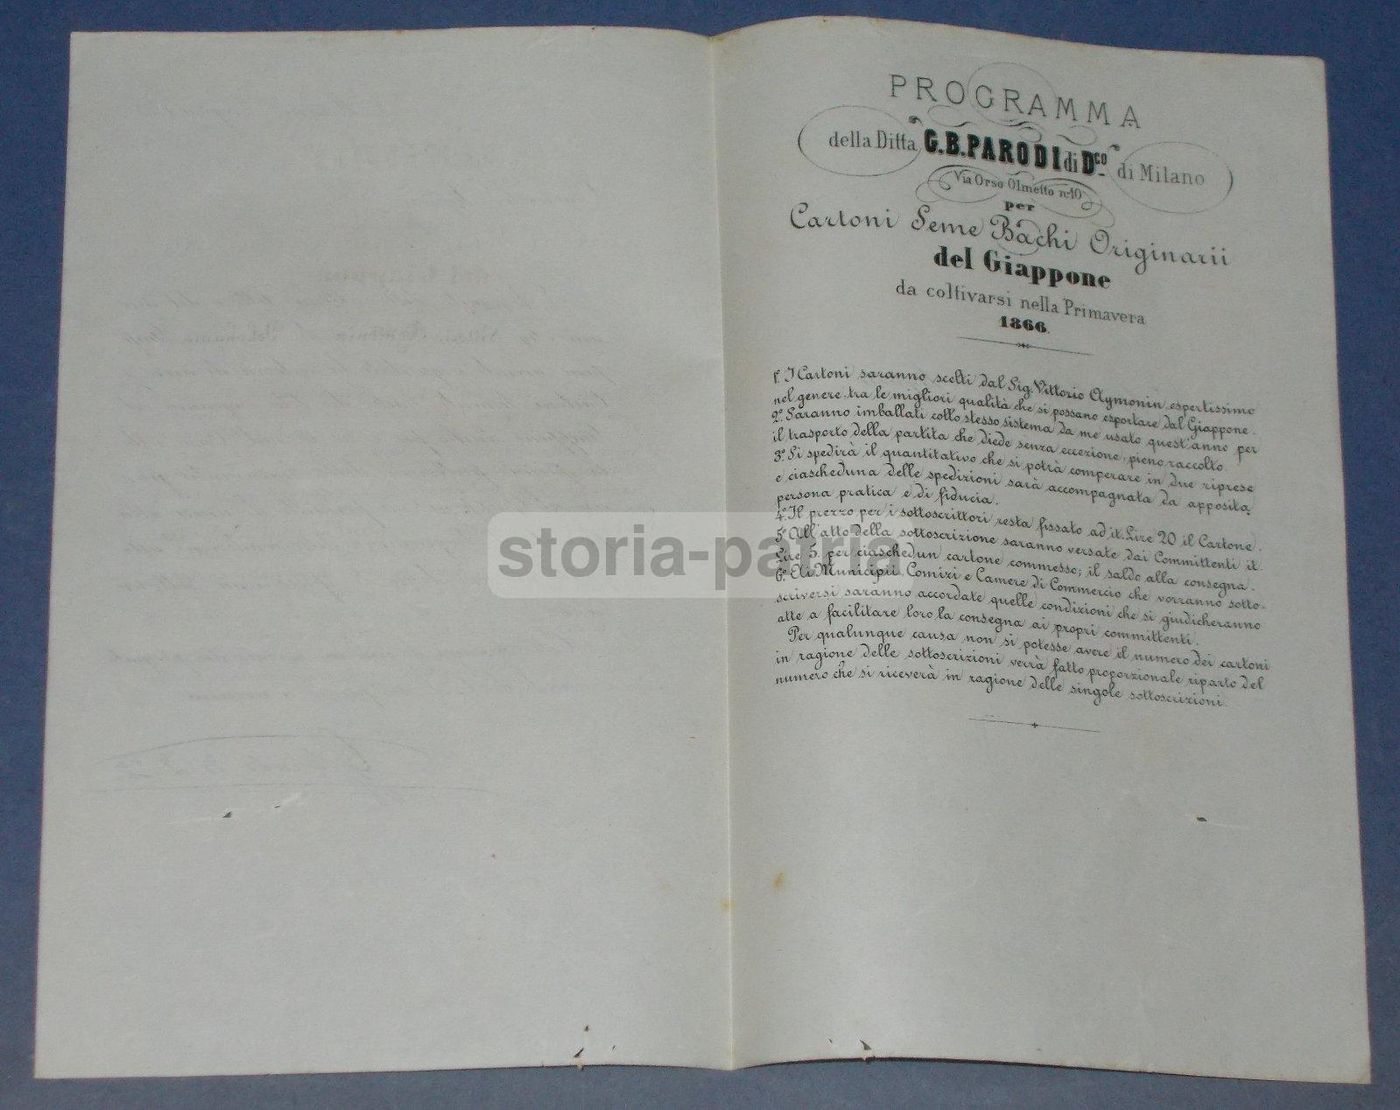 PROGRAMMA
della Ditta G. B. PARODI di D.co di Milano
Via Orso Olmetto n. 10
per
Cartoni Seme Bachi Originarii
del Giappone
da coltivarsi nella Primavera
1866.
1.° I Cartoni saranno scelti dal Sig. Vittorio Aymonin, espertissimo
nel genere, tra le migliori qualità che si possano esportare dal Giappone.
2.° Saranno imballati collo stesso sistema da me usato quest'anno per
il trasporto della partita che diede senza eccezione, pieno raccolto.
3.° Si spedirà il quantitativo che si potrà comperare in due riprese
e ciascheduna delle spedizioni sarà accompagnata da apposita
persona pratica e di fiducia.
4.° Il prezzo per i sottoscrittori resta fissato ad it. Lire 20 il Cartone.
5.° All'atto della sottoscrizione saranno versate dai Committenti it.
Lire 5. per ciaschedun cartone commesso; il saldo alla consegna.
6.° Ai Municipii, Comizi e Camere di Commercio che vorranno sotto-
scriversi saranno accordate quelle condizioni che si giudicheranno
atte a facilitare loro la consegna ai propri committenti.
Per qualunque causa non si potesse avere il numero dei cartoni
in ragione delle sottoscrizioni verrà fatto proporzionale riparto del
numero che si riceverà in ragione delle singole sottoscrizioni.
storia-patria